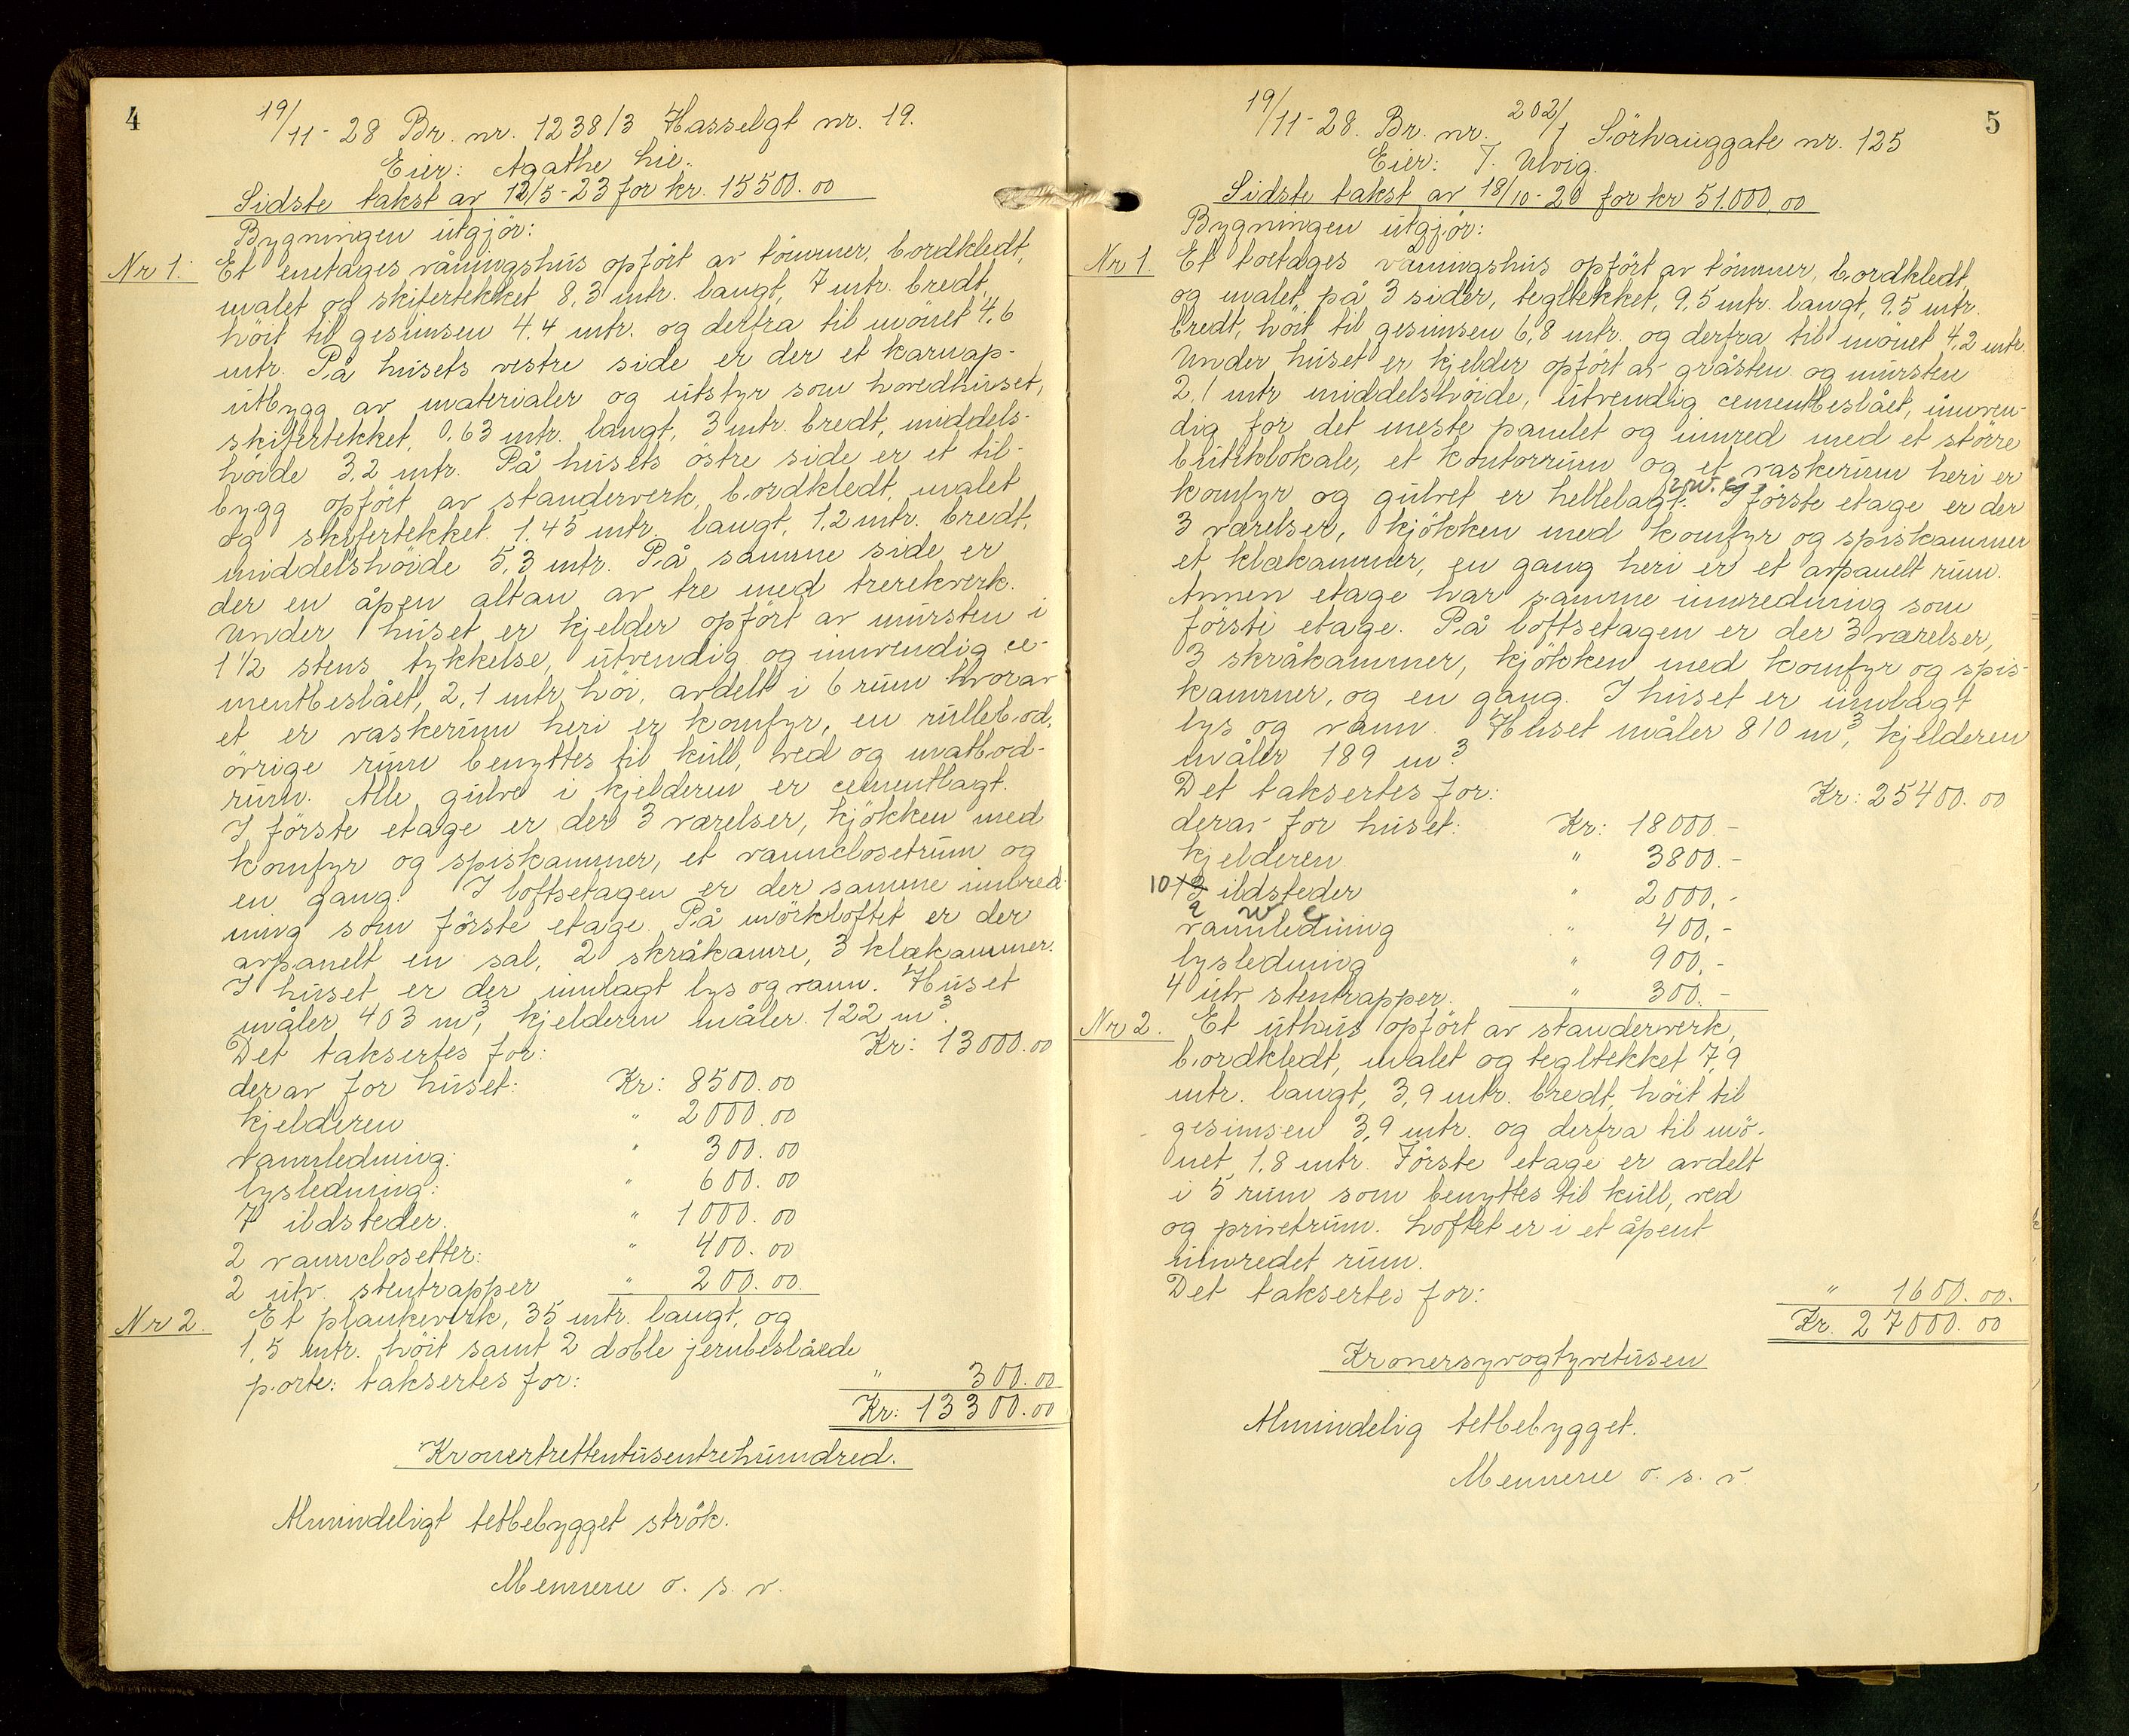 4
19/11-28 Br. nr. 1238/3 Hasselgt nr. 19.
Eier: Agathe Lie.
Sidste takst av 12/5-23 for kr. 15500.00
Bygningen utgjør:
Nr 1. Et enetages våningshus opført av tömmer, bordkledt,
malet og skifertekket 8,3 mtr. langt, 7 mtr. bredt,
höit til gesimsen 4,4 mtr. og derfra til mönet 4,6
mtr. På husets vestre side er der et karnap-
utbygg av materialer og utstyr som hovedhuset,
skifertekket, 0,63 mtr. langt, 3 mtr. bredt, middels-
höide 3,2 mtr. På husets östre side er et til-
bygg opfört av standerverk, bordkledt, malet
og skifertekket 1,45 mtr. langt, 1,2 mtr. bredt,
middelshöide 5,3 mtr. På samme side er
der en åpen altan av tre med trerekverk.
Under huset er kjelder opfört av mursten i
1 1/2 stens tykkelse, utvendig og innvendig ce-
mentbeslået, 2,1 mtr. höi, avdelt i 6 rum hvorav
et er vaskerum heri er komfyr, en rullebod,
övrige rum benyttes til kull, ved og matbod-
rum. Alle gulve i kjelderen er cementlagt.
I förste etage er der 3 værelser, kjökken med
komfyr og spiskammer, et vannclosetrum og
en gang. I loftsetagen er der samme innred-
ning som förste etage. På mörkloftet er der
avpanelt en sal, 2 skråkamre, 3 klækammer.
I huset er der innlagt lys og vann. Huset
måler 403 m³, kjelderen måler 122 m³.
Det taksertes for: Kr: 13000.00
derav for huset: Kr: 8500.00
kjelderen " 2000.00
vannledning: " 300.00
lysledning: " 600.00
7 ildsteder. " 1000.00
2 vannclosetter: " 400.00
2 utv. stentrapper " 200.00.
Nr 2. Et plankeverk, 35 mtr. langt, og
1,5 mtr. höit samt 2 doble jernbeslåede
porte: taksertes for: " 300.00
Kr: 13300.00
Kronertrettentusentrehundred.
Almindeligt tetbebygget strök.
Mennene o. s. v.
5
19/11-28. Br. nr. 202/1 Sörhauggate nr. 125
Eier: T. Ulvig.
Sidste takst av 18/10-20 for kr 51.000,00
Bygningen utgjör:
Nr 1. Et toetages våningshus opfört av tömmer, bordkledt,
og malet på 3 sider, tegltekket, 9,5 mtr. langt, 9,5 mtr.
bredt, höit til gesimsen 6,8 mtr. og derfra til mönet 4,2 mtr.
Under huset er kjelder opfört av gråsten og mursten
2,1 mtr middelshöide, utvendig cementbeslået, innven-
dig for det meste panelet og innred med et större
butiklokale, et kontorrum og et vaskerum heri er
komfyr og gulvet er hellelagt. I förste etage er der
3 værelser, kjökken med komfyr og spiskammer
et klækammer, en gang heri er et avpanelt rum.
Annen etage har samme innredning som
förste etage. På loftsetagen er der 3 værelser,
3 skråkammer, kjökken med komfyr og spis-
kammer, og en gang. I huset er innlagt
lys og vann. Huset måler 810 m³, kjelderen
måler 189 m³.
Det taksertes for: Kr: 25400.00
derav for huset: Kr: 18000.-
kjelderen " 3800.-
10 13 ildsteder " 2000.-
vannledning " 400.-
lysledning " 900.-
4 utv stentrapper. " 300.-
Nr 2. Et uthus opfört av standerverk,
bordkledt, malet og tegltekket 7,9
mtr. langt, 3,9 mtr. bredt, höit til
gesimsen 3,9 mtr. og derfra til mö-
net 1,8 mtr. Förste etage er avdelt
i 5 rum som benyttes til kull, ved
og privetrum. Loftet er i et åpent
uinnredet rum.
Det taksertes for: " 1600.00.
Kr. 27000.00
Kronersyvogtyvetusen
Almindelig tetbebygget.
Mennene o. s. v.